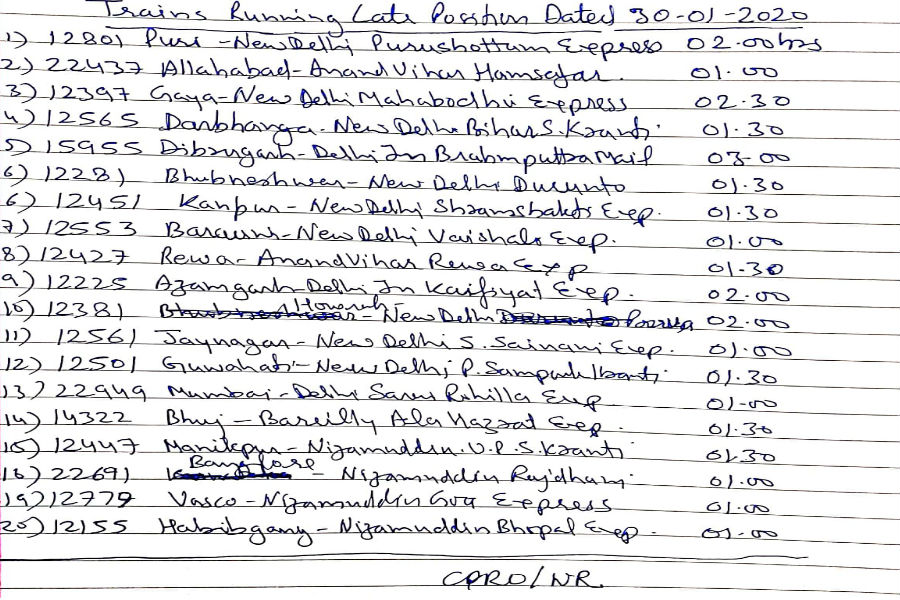 Trains Running Late Position Dated 30-01-2020
1) 12801 Puri - New Delhi Purushottam Express 02.00hrs
2) 22437 Allahabad - Anand Vihar Hamsafar. 01.00
3) 12397 Gaya - New Delhi Mahabodhi Express 02.30
4) 12565 Darbhanga - New Delhi Bihar S. Kranti 01.30
5) 15955 Dibrugarh - Delhi Jn Brahmputtra Mail 03-00
6) 12281 Bhubneshwer - New Delhi Duronto 01.30
6) 12451 Kanpur - New Delhi Shramshakti Exp. 01.30
7) 12553 Barauni - New Delhi Vaishali Exp. 01.00
8) 12427 Rewa - Anand Vihar Rewa Exp 01-30
9) 12225 Azamgarh - Delhi Jn Kaifiyat Exp. 02.00
10) 12381 Howrah - New Delhi Poorva 02.00
11) 12561 Jaynagar - New Delhi S. Sainani Exp. 01.00
12) 12501 Guwahati - New Delhi P. Sampark Kranti 01.30
13) 22949 Mumbai - Delhi Sarai Rohilla Exp 01-00
14) 14322 Bhuj - Bareilly Ala Hazrat Exp. 01.30
15) 12447 Manikpur - Nizamuddin. U.P.S. Kranti 01.30
16) 22691 Banglore - Nizamuddin Rajdhani 01.00
19) 12779 Vasco - Nizamuddin Goa Express 01.00
20) 12155 Habibganj - Nizamuddin Bhopal Exp. 01.00
CPRO/NR.